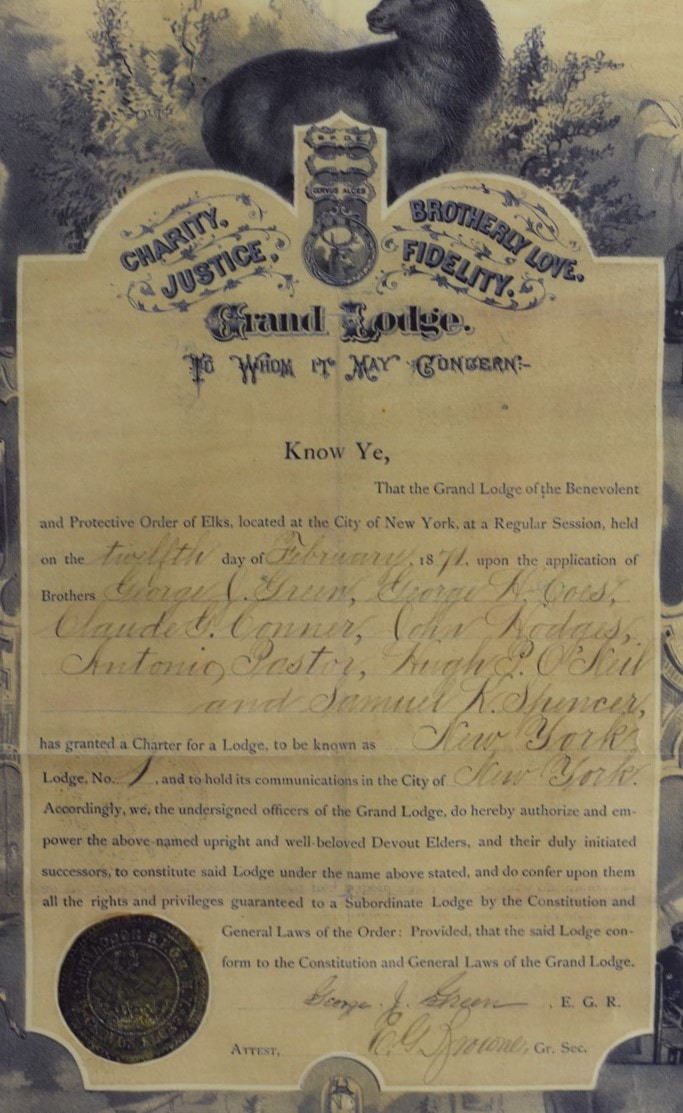 B.P.O.E.
CERVUS ALCES
CHARITY,
JUSTICE,
BROTHERLY LOVE,
FIDELITY.
Grand Lodge.
TO WHOM IT MAY CONCERN:-
Know Ye,
That the Grand Lodge of the Benevolent
and Protective Order of Elks, located at the City of New York, at a Regular Session, held
on the twelfth day of February, 1871, upon the application of
Brothers George J. Green, George H. Coes,
Claude G. Conner, John Hodges,
Antonio Pastor, Hugh P. O'Neil
and Samuel K. Spencer,
has granted a Charter for a Lodge, to be known as New York
Lodge, No. 1, and to hold its communications in the City of New York.
Accordingly, we, the undersigned officers of the Grand Lodge, do hereby authorize and em-
power the above-named upright and well-beloved Devout Elders, and their duly initiated
successors, to constitute said Lodge under the name above stated, and do confer upon them
all the rights and privileges guaranteed to a Subordinate Lodge by the Constitution and
General Laws of the Order: Provided, that the said Lodge con-
form to the Constitution and General Laws of the Grand Lodge.
George J. Green, E. G. R.
ATTEST, E G Browne, Gr. Sec.